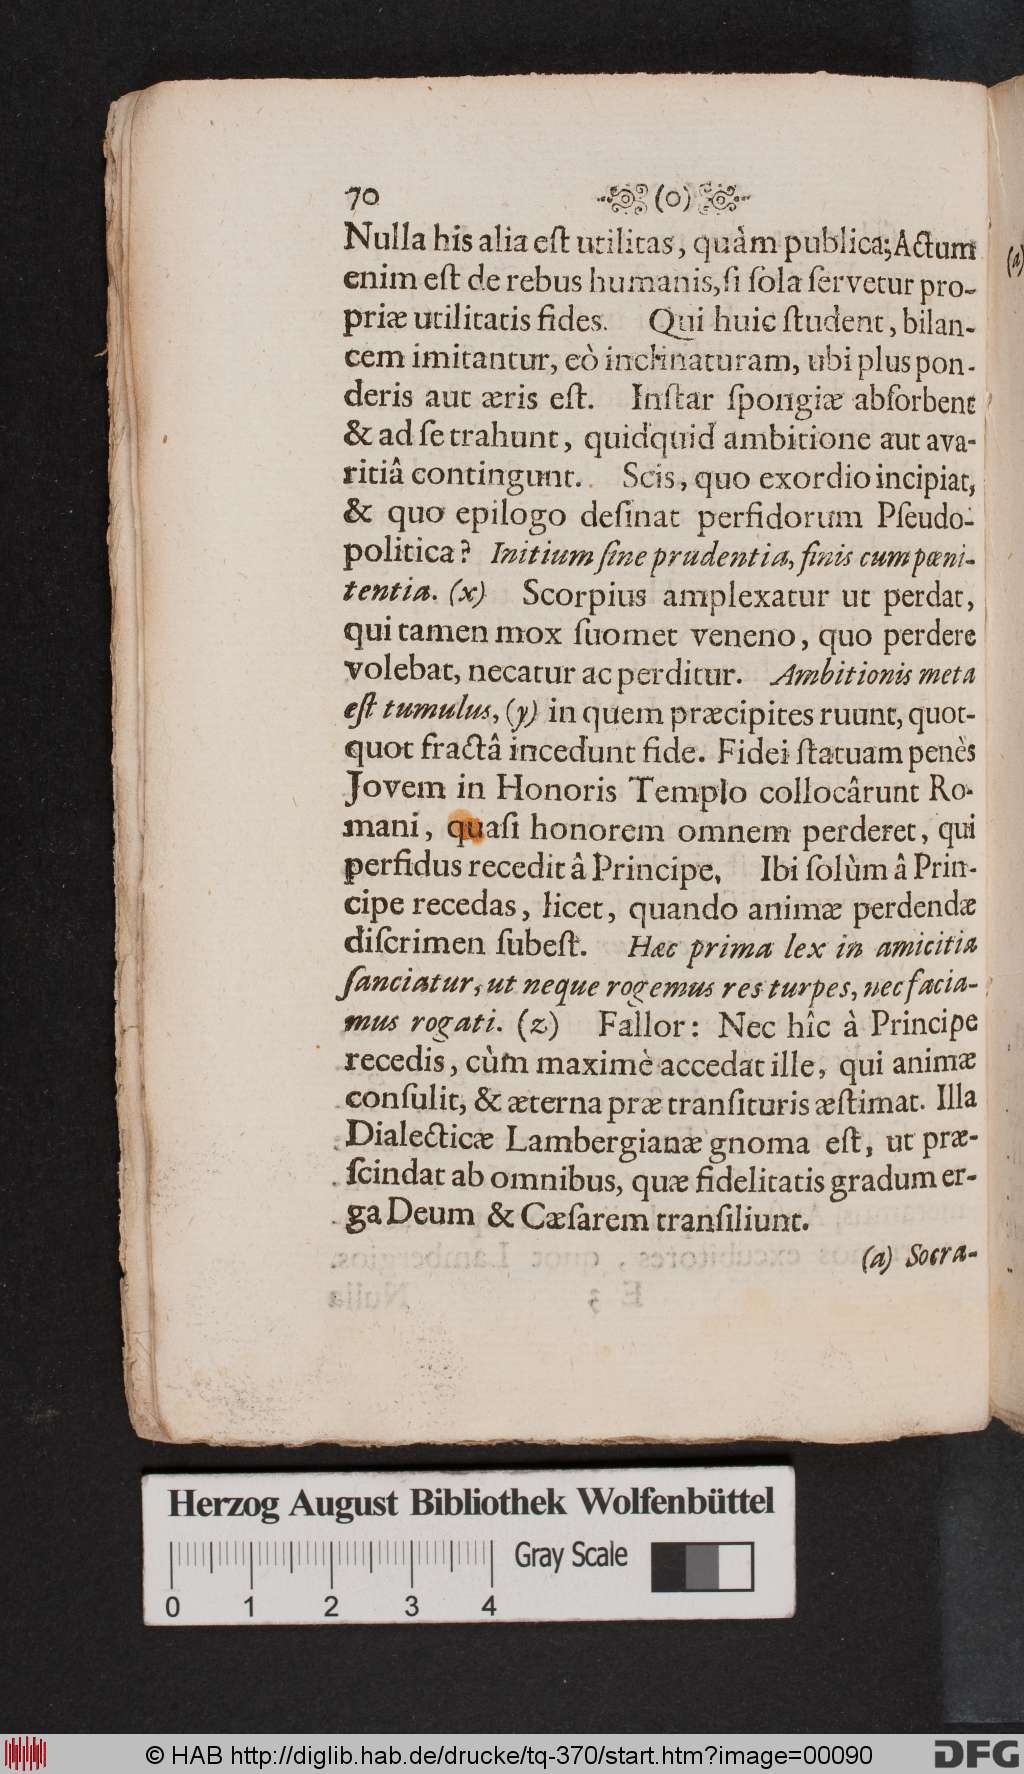 70 (o)
Nulla his alia eſt utilitas, quàm publica; Actum
enim eſt de rebus humanis, ſi ſola ſervetur pro-
priæ utilitatis fides. Qui huic ſtudent, bilan-
cem imitantur, eò inclinaturam, ubi plus pon-
deris aut æris eſt. Inſtar ſpongiæ abſorbent
& ad ſe trahunt, quidquid ambitione aut ava-
ritiâ contingunt. Scis, quo exordio incipiat,
& quo epilogo deſinat perfidorum Pſeudo-
politica? Initium ſine prudentia, finis cum pœni-
tentia. (x) Scorpius amplexatur ut perdat,
qui tamen mox ſuomet veneno, quo perdere
volebat, necatur ac perditur. Ambitionis meta
eſt tumulus, (y) in quem præcipites ruunt, quot-
quot fractâ incedunt fide. Fidei ſtatuam penès
Jovem in Honoris Templo collocârunt Ro-
mani, quaſi honorem omnem perderet, qui
perfidus recedit â Principe, Ibi ſolùm â Prin-
cipe recedas, licet, quando animæ perdendæ
diſcrimen ſubeſt. Hæc prima lex in amicitia
ſanciatur, ut neque rogemus res turpes, nec facia-
mus rogati. (z) Fallor: Nec hîc à Principe
recedis, cùm maximè accedat ille, qui animæ
conſulit, & æterna præ tranſituris æſtimat. Illa
Dialecticæ Lambergianæ gnoma eſt, ut præ-
ſcindat ab omnibus, quæ fidelitatis gradum er-
ga Deum & Cæſarem tranſiliunt.
(a) Socra-
(a)
Herzog August Bibliothek Wolfenbüttel
Gray Scale
0 1 2 3 4
© HAB http://diglib.hab.de/drucke/tq-370/start.htm?image=00090
DFG